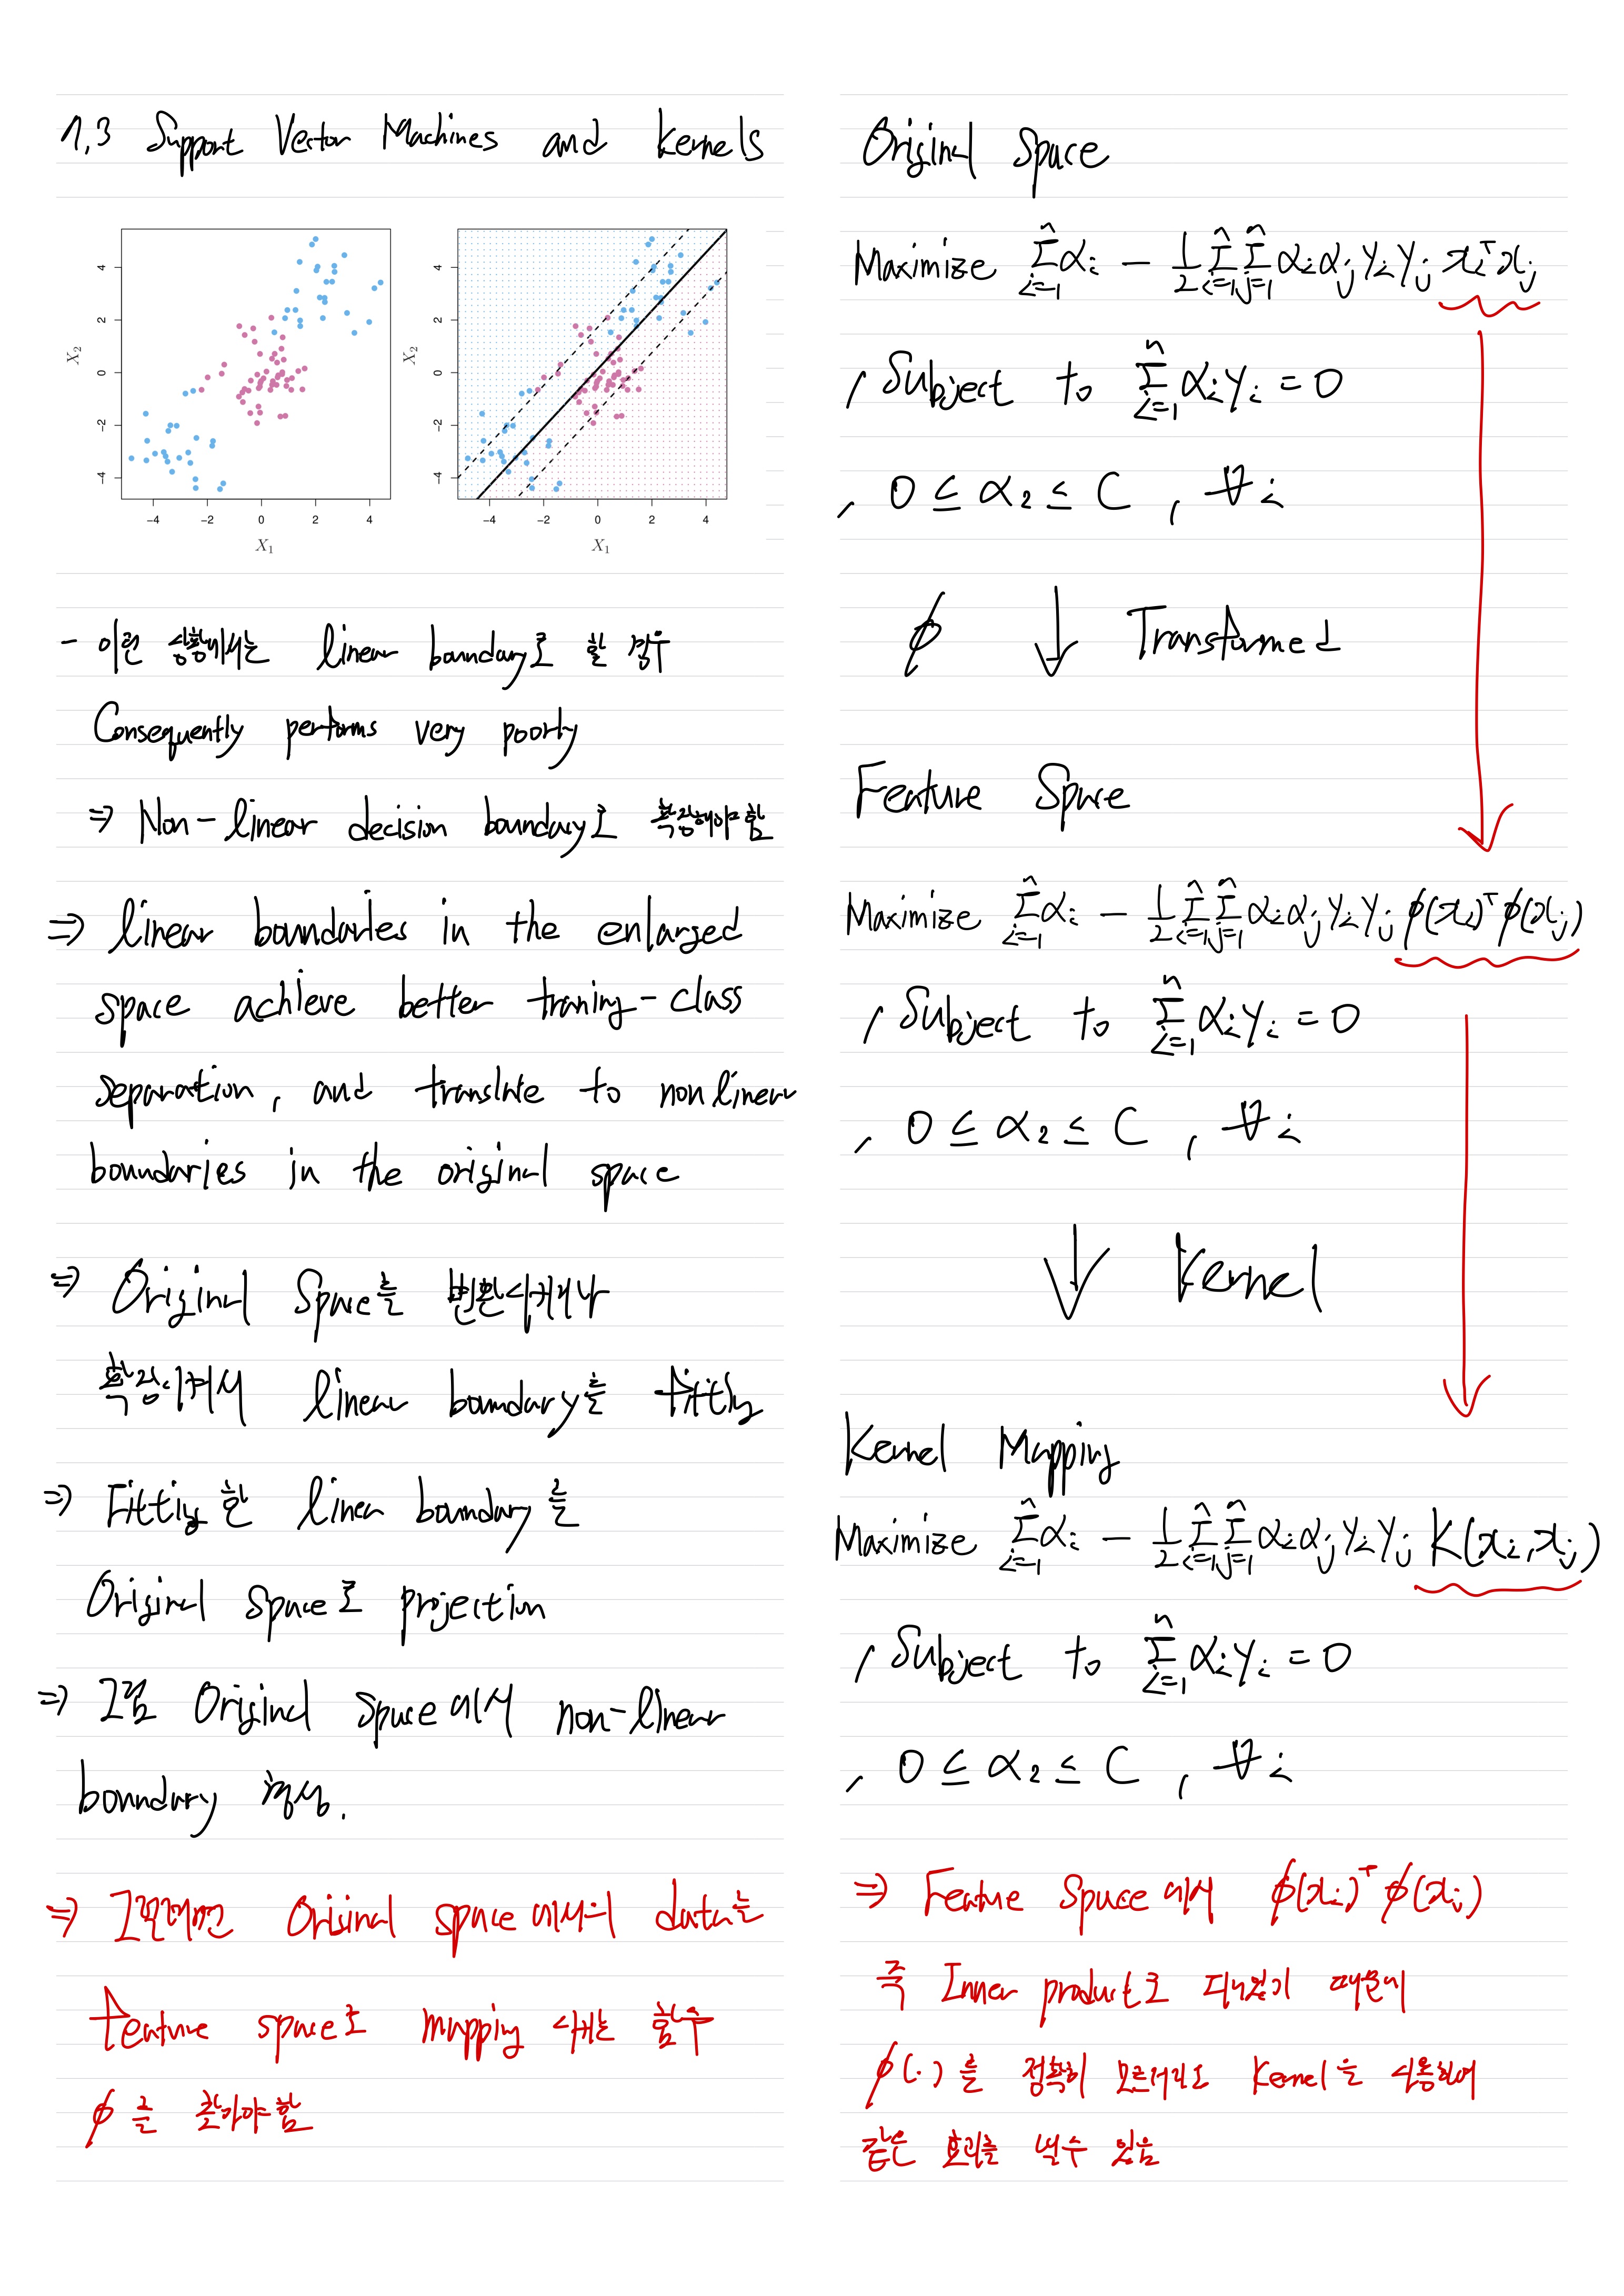 1,3 Support Vector Machines and Kernels
4
2
0
-2
-4
X₂
-4 -2 0 2 4
X₁
4
2
0
-2
-4
X₂
-4 -2 0 2 4
X₁
- 이런 상황에서는 linear boundary로 할 경우
Consequently performs very poorly
⇒ Non-linear decision boundary로 확장해야함
⇒ linear boundaries in the enlarged
space achieve better traning-class
separation, and translate to nonlinear
boundaries in the original space
⇒ Original Space를 변환시키거나
확장시켜서 linear boundary를 fitting
⇒ Fitting한 linear boundary를
Original Space로 projection
⇒ 그럼 Original Space에서 non-linear
boundary 형성.
⇒ 그렇게하려면 Original space에서의 data를
feature space로 mapping 시키는 함수
ϕ를 찾아야함
Original Space
Maximize Σⁿᵢ₌₁ αᵢ − 1/2 Σⁿᵢ₌₁ Σⁿⱼ₌₁ αᵢαⱼyᵢyⱼ xᵢᵀxⱼ
, Subject to Σⁿᵢ₌₁ αᵢyᵢ = 0
, 0 ≤ α₂ ≤ C , ∀i
ϕ ↓ Transformed
Feature Space
Maximize Σⁿᵢ₌₁ αᵢ − 1/2 Σⁿᵢ₌₁ Σⁿⱼ₌₁ αᵢαⱼyᵢyⱼ ϕ(xᵢ)ᵀϕ(xⱼ)
, Subject to Σⁿᵢ₌₁ αᵢyᵢ = 0
, 0 ≤ α₂ ≤ C , ∀i
↓ Kernel
Kernel Mapping
Maximize Σⁿᵢ₌₁ αᵢ − 1/2 Σⁿᵢ₌₁ Σⁿⱼ₌₁ αᵢαⱼyᵢyⱼ K(xᵢ,xⱼ)
, Subject to Σⁿᵢ₌₁ αᵢyᵢ = 0
, 0 ≤ α₂ ≤ C , ∀i
⇒ Feature Space에서 ϕ(xᵢ)ᵀϕ(xⱼ)
즉 Inner product로 되어있기 때문에
ϕ(·)를 정확히 모르더라도 Kernel을 사용하여
같은 효과를 낼수 있음